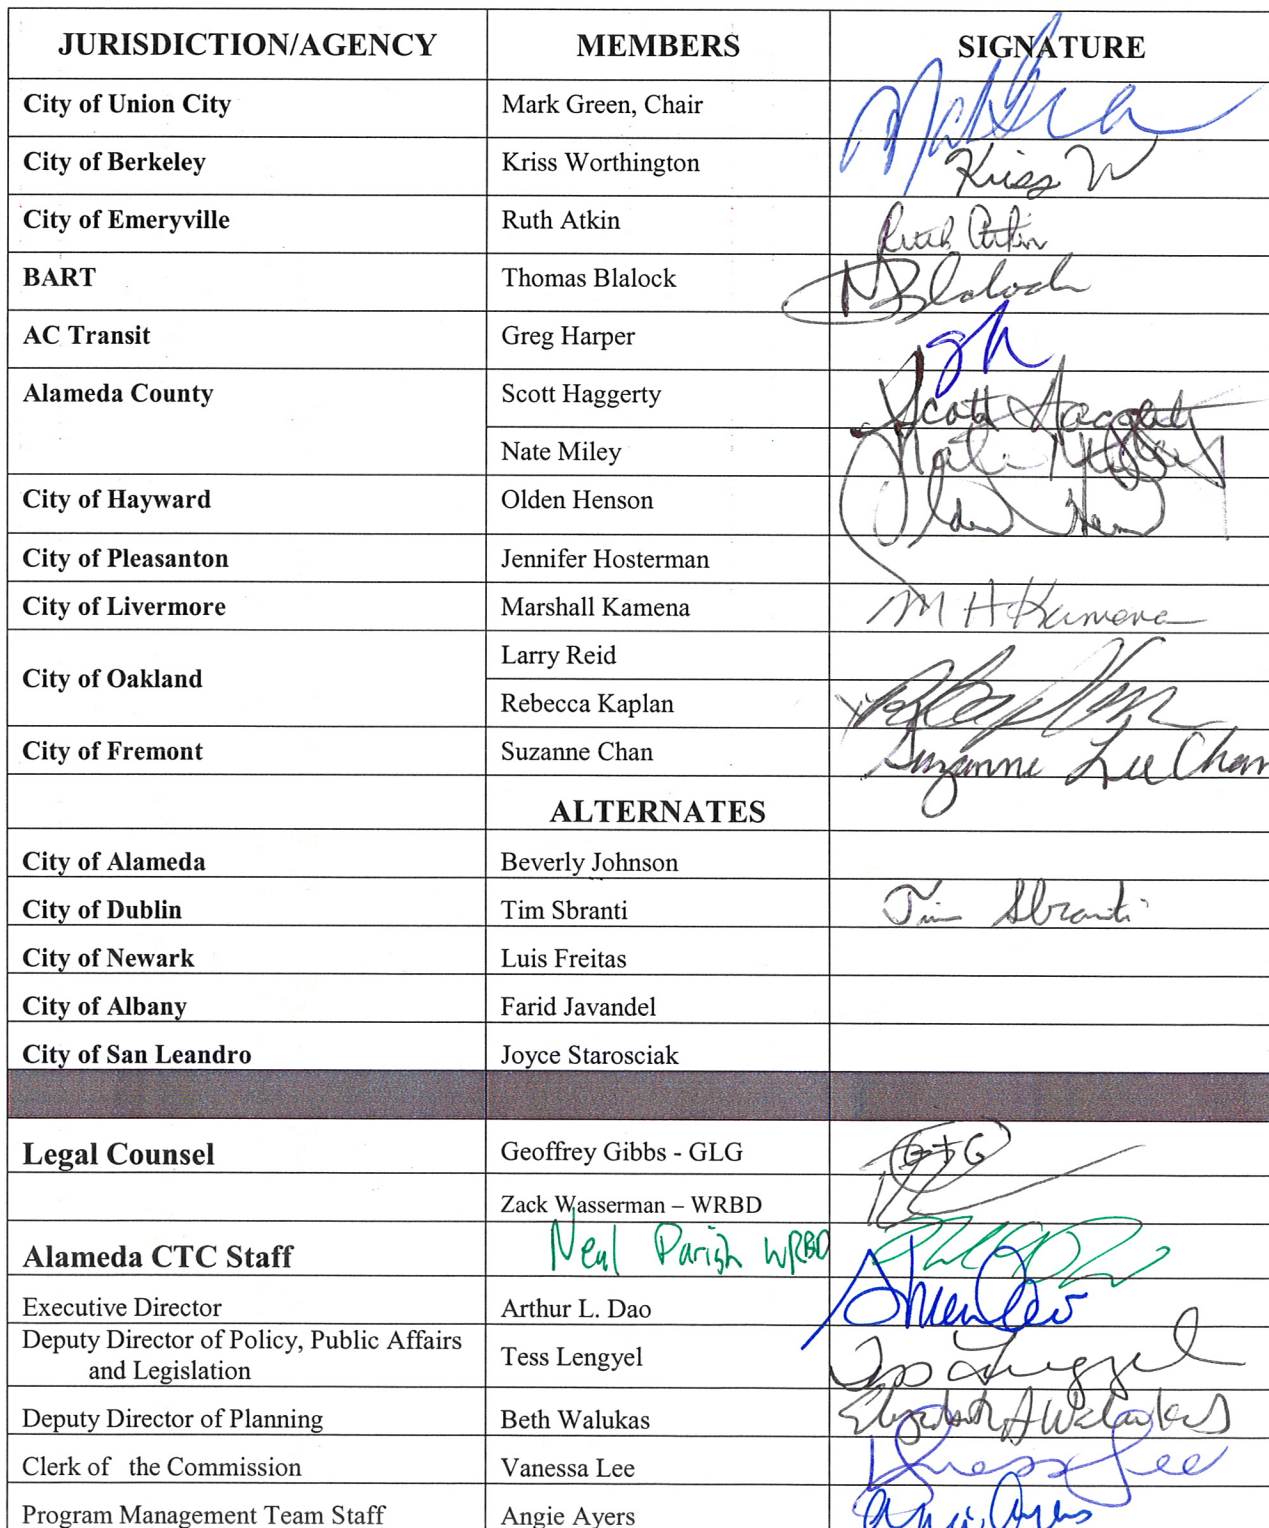 JURISDICTION/AGENCY MEMBERS SIGNATURE
City of Union City Mark Green, Chair
City of Berkeley Kriss Worthington Kriss W
City of Emeryville Ruth Atkin Ruth Atkin
BART Thomas Blalock Blalock
AC Transit Greg Harper gh
Alameda County Scott Haggerty Scott Haggerty
Nate Miley Nate Miley
City of Hayward Olden Henson Olden Henson
City of Pleasanton Jennifer Hosterman
City of Livermore Marshall Kamena M H Kamena
City of Oakland Larry Reid
Rebecca Kaplan RKaplan
City of Fremont Suzanne Chan Suzanne Lee Chan
ALTERNATES
City of Alameda Beverly Johnson
City of Dublin Tim Sbranti Tim Sbranti
City of Newark Luis Freitas
City of Albany Farid Javandel
City of San Leandro Joyce Starosciak
Legal Counsel Geoffrey Gibbs - GLG
Zack Wasserman – WRBD
Alameda CTC Staff Neal Parish WRBD
Executive Director Arthur L. Dao
Deputy Director of Policy, Public Affairs
and Legislation Tess Lengyel Tess Lengyel
Deputy Director of Planning Beth Walukas Elizabeth A Walukas
Clerk of the Commission Vanessa Lee Vanessa Lee
Program Management Team Staff Angie Ayers Angie Ayers